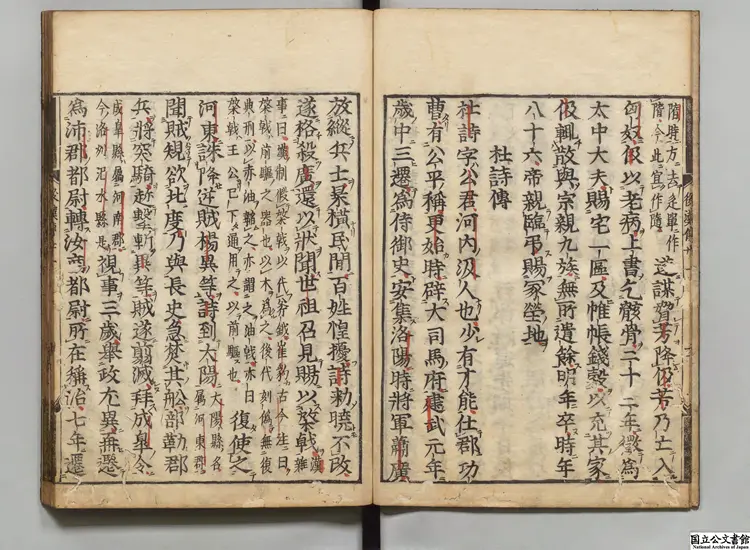 遂謀脅芳降伋芳乃亡入
匈奴伋以老病上書乞骸骨二十二年徵爲
太中大夫賜宅一區及帷帳錢穀以充其家
伋輒散與宗親九族無所遺餘明年卒時年
八十六帝親臨弔賜冢塋地
杜詩傳
杜詩字公君河內汲人也少有才能仕郡功
曹有公平稱更始時辟大司馬府建武元年
歲中三遷爲侍御史安集洛陽時將軍蕭廣
放縱兵士暴橫民閒百姓惶擾詩勑曉不改
遂格殺廣還以狀聞世祖召見賜以棨戟漢雜
事曰漢制假棨戟以代斧鉞崔豹古今注曰
棨戟前驅之器也以木爲之後代刻僞無復
典刑以赤油韜之亦謂之油戟亦曰
棨戟王公已下通用之以前驅也復使之
河東誅降逆賊楊異等詩到大陽大陽縣名屬河東郡
聞賊規欲北度乃與長史急焚其船部勒郡
兵將突騎趁擊斬異等賊遂翦滅拜成皋令
成皋縣屬河南郡今洛州汜水縣是視事三歲舉政尤異再遷
爲沛郡都尉轉汝南都尉所在稱治七年遷
国立公文書館
National Archives of Japan